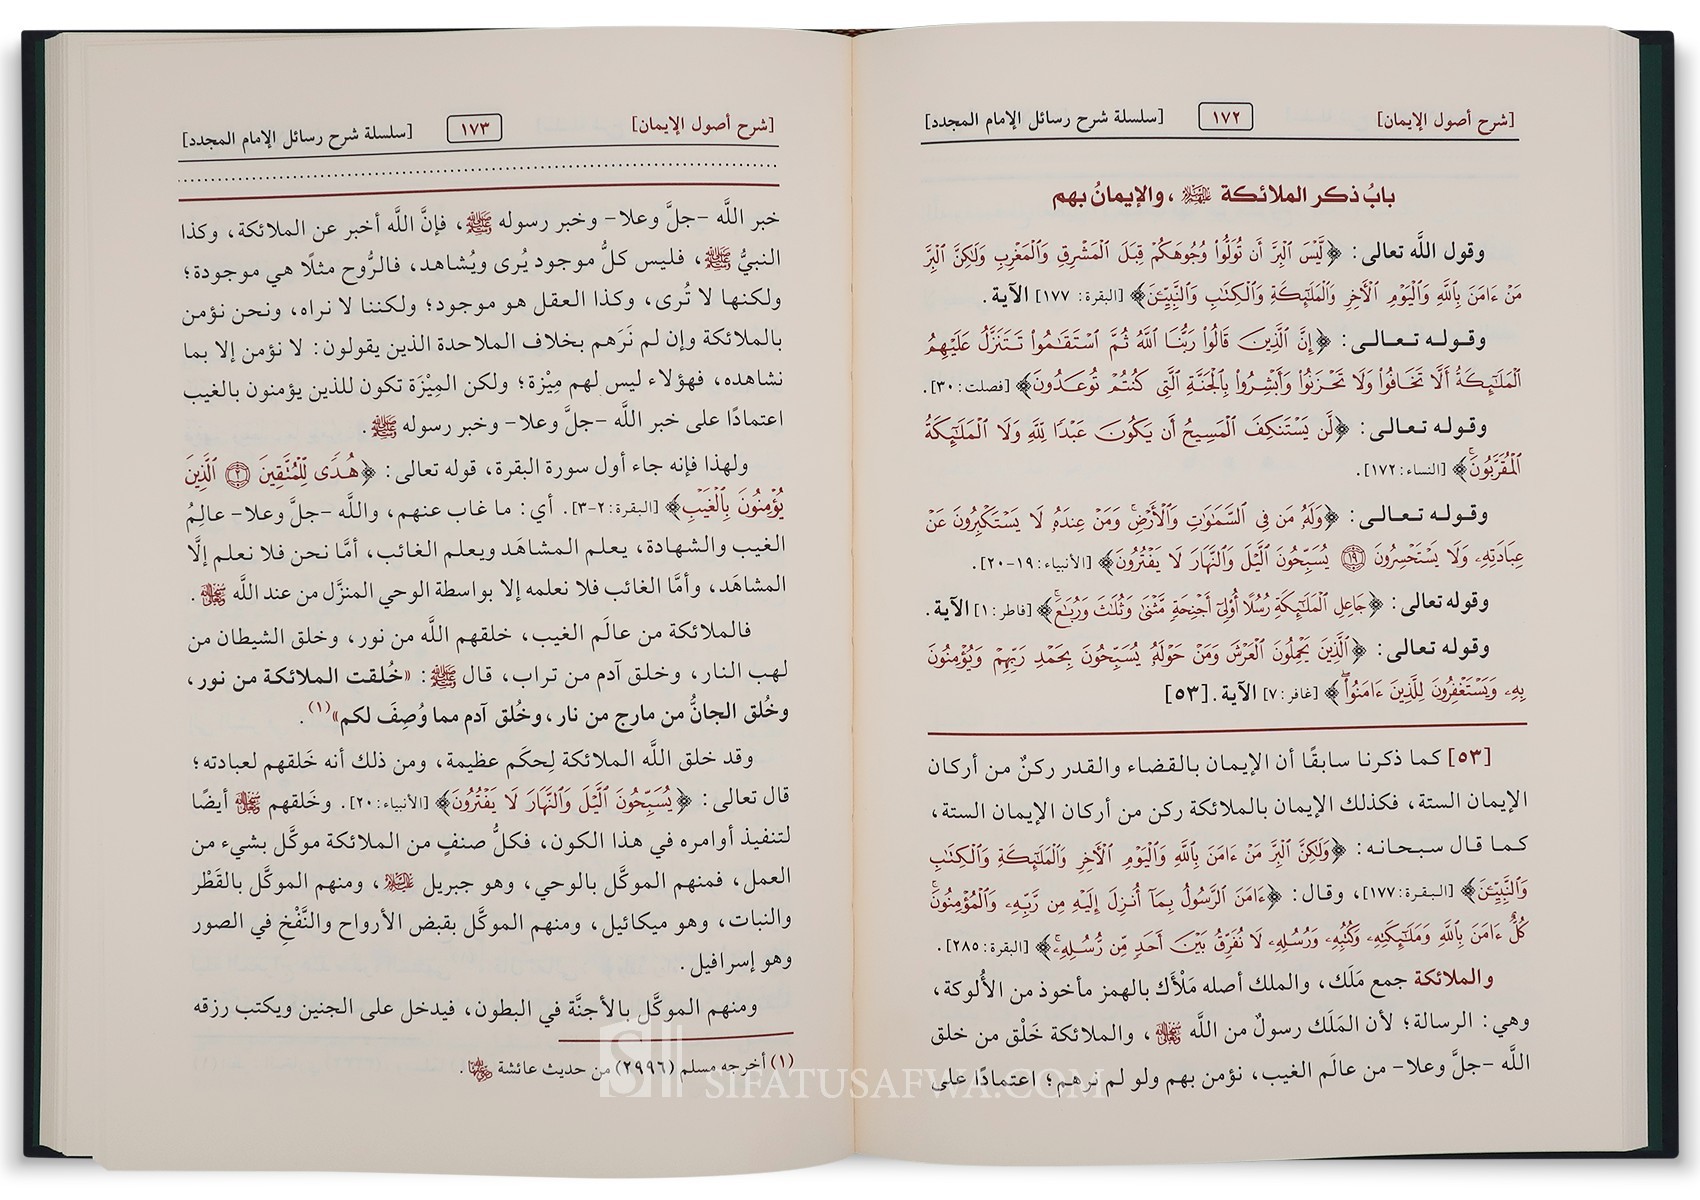 [شرح أصول الإيمان] ١٧٢ [سلسلة شرح رسائل الإمام المجدد]
بابُ ذكر الملائكة عليهم السلام، والإيمانُ بهم
وقول اللَّه تعالى: ﴿لَّيْسَ الْبِرَّ أَن تُوَلُّوا وُجُوهَكُمْ قِبَلَ الْمَشْرِقِ وَالْمَغْرِبِ وَلَٰكِنَّ الْبِرَّ
مَنْ ءَامَنَ بِاللَّهِ وَالْيَوْمِ الْآخِرِ وَالْمَلَٰئِكَةِ وَالْكِتَٰبِ وَالنَّبِيِّۦنَ﴾ [البقرة: ١٧٧] الآية.
وقوله تعالى: ﴿إِنَّ الَّذِينَ قَالُوا رَبُّنَا اللَّهُ ثُمَّ اسْتَقَٰمُوا تَتَنَزَّلُ عَلَيْهِمُ
الْمَلَٰئِكَةُ أَلَّا تَخَافُوا وَلَا تَحْزَنُوا وَأَبْشِرُوا بِالْجَنَّةِ الَّتِي كُنتُمْ تُوعَدُونَ﴾ [فصلت: ٣٠].
وقوله تعالى: ﴿لَّن يَسْتَنكِفَ الْمَسِيحُ أَن يَكُونَ عَبْدًا لِّلَّهِ وَلَا الْمَلَٰئِكَةُ
الْمُقَرَّبُونَ﴾ [النساء: ١٧٢].
وقوله تعالى: ﴿وَلَهُ مَن فِي السَّمَٰوَٰتِ وَالْأَرْضِ وَمَنْ عِندَهُ لَا يَسْتَكْبِرُونَ عَنْ
عِبَادَتِهِ وَلَا يَسْتَحْسِرُونَ ١٩ يُسَبِّحُونَ الَّيْلَ وَالنَّهَارَ لَا يَفْتُرُونَ﴾ [الأنبياء: ١٩-٢٠].
وقوله تعالى: ﴿جَاعِلِ الْمَلَٰئِكَةِ رُسُلًا أُولِي أَجْنِحَةٍ مَّثْنَىٰ وَثُلَٰثَ وَرُبَٰعَ﴾ [فاطر: ١] الآية.
وقوله تعالى: ﴿الَّذِينَ يَحْمِلُونَ الْعَرْشَ وَمَنْ حَوْلَهُ يُسَبِّحُونَ بِحَمْدِ رَبِّهِمْ وَيُؤْمِنُونَ
بِهِ وَيَسْتَغْفِرُونَ لِلَّذِينَ ءَامَنُوا﴾ [غافر: ٧] الآية. [٥٣]
[٥٣] كما ذكرنا سابقًا أن الإيمان بالقضاء والقدر ركنٌ من أركان
الإيمان الستة، فكذلك الإيمان بالملائكة ركن من أركان الإيمان الستة،
كما قال سبحانه: ﴿وَلَٰكِنَّ الْبِرَّ مَنْ ءَامَنَ بِاللَّهِ وَالْيَوْمِ الْآخِرِ وَالْمَلَٰئِكَةِ وَالْكِتَٰبِ
وَالنَّبِيِّۦنَ﴾ [البقرة: ١٧٧]، وقال: ﴿ءَامَنَ الرَّسُولُ بِمَا أُنزِلَ إِلَيْهِ مِن رَّبِّهِ وَالْمُؤْمِنُونَ
كُلٌّ ءَامَنَ بِاللَّهِ وَمَلَٰئِكَتِهِ وَكُتُبِهِ وَرُسُلِهِ لَا نُفَرِّقُ بَيْنَ أَحَدٍ مِّن رُّسُلِهِ﴾ [البقرة: ٢٨٥].
والملائكة جمع مَلَك، والملك أصله مَلْأَك بالهمز مأخوذ من الأُلوكة،
وهي: الرسالة؛ لأن المَلَك رسولٌ من اللَّه سبحانه وتعالى، والملائكة خَلْق من خلق
اللَّه -جلَّ وعلا- من عالَم الغيب، نؤمن بهم ولو لم نرهم؛ اعتمادًا على
[شرح أصول الإيمان] ١٧٣ [سلسلة شرح رسائل الإمام المجدد]
خبر اللَّه -جلَّ وعلا- وخبر رسوله ﷺ، فإنَّ اللَّه أخبر عن الملائكة، وكذا
النبيُّ ﷺ، فليس كلُّ موجود يُرى ويُشاهد، فالرُّوح مثلًا هي موجودة؛
ولكنها لا تُرى، وكذا العقل هو موجود؛ ولكننا لا نراه، ونحن نؤمن
بالملائكة وإن لم نَرَهم بخلاف الملاحدة الذين يقولون: لا نؤمن إلا بما
نشاهده، فهؤلاء ليس لهم مِيْزة؛ ولكن المِيْزَة تكون للذين يؤمنون بالغيب
اعتمادًا على خبر اللَّه -جلَّ وعلا- وخبر رسوله ﷺ.
ولهذا فإنه جاء أول سورة البقرة، قوله تعالى: ﴿هُدًى لِّلْمُتَّقِينَ ٢ الَّذِينَ
يُؤْمِنُونَ بِالْغَيْبِ﴾ [البقرة: ٢-٣]. أي: ما غاب عنهم، واللَّه -جلَّ وعلا- عالِمُ
الغيب والشهادة، يعلم المشاهَد ويعلم الغائب، أمَّا نحن فلا نعلم إلَّا
المشاهَد، وأمَّا الغائب فلا نعلمه إلا بواسطة الوحي المنزَّل من عند اللَّه سبحانه وتعالى.
فالملائكة من عالَم الغيب، خلقهم اللَّه من نور، وخلق الشيطان من
لهب النار، وخلق آدم من تراب، قال ﷺ: «خُلقت الملائكة من نور،
وخُلق الجانُّ من مارج من نار، وخُلق آدم مما وُصِفَ لكم»(١).
وقد خلق اللَّه الملائكة لِحكَم عظيمة، ومن ذلك أنه خَلقهم لعبادته؛
قال تعالى: ﴿يُسَبِّحُونَ الَّيْلَ وَالنَّهَارَ لَا يَفْتُرُونَ﴾ [الأنبياء: ٢٠]. وخَلقهم سبحانه وتعالى أيضًا
لتنفيذ أوامره في هذا الكون، فكلُّ صنفٍ من الملائكة موكَّل بشيء من
العمل، فمنهم الموكَّل بالوحي، وهو جبريل عليه السلام، ومنهم الموكَّل بالقَطْر
والنبات، وهو ميكائيل، ومنهم الموكَّل بقبض الأرواح والنَّفْخِ في الصور
وهو إسرافيل.
ومنهم الموكَّل بالأجنَّة في البطون، فيدخل على الجنين ويكتب رزقه
(١) أخرجه مسلم (٢٩٩٦) من حديث عائشة رضي الله عنها.
SIFATUSAFWA.COM